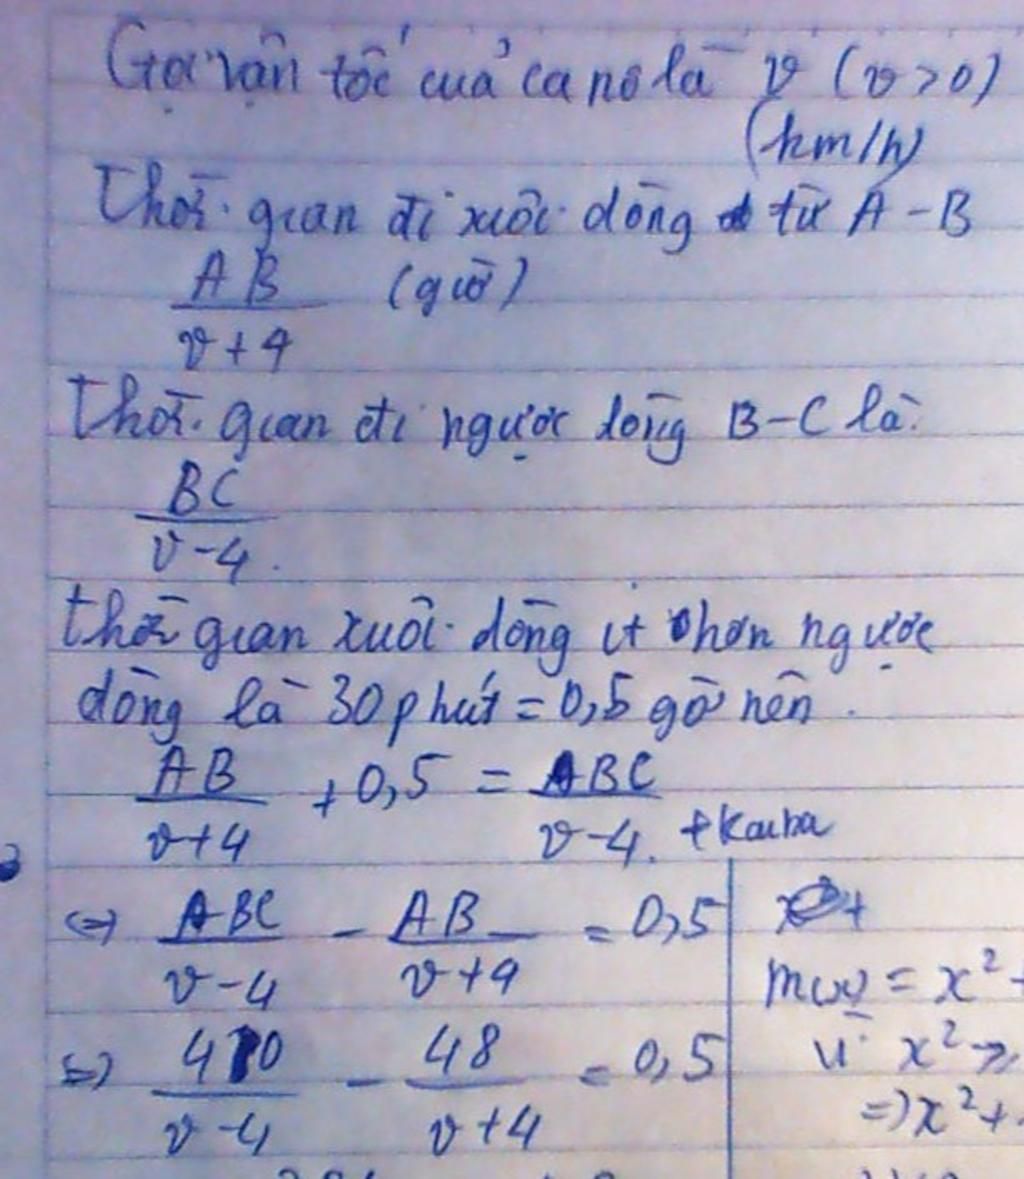 Gọi vận tốc của ca nô là v (v>0)
(km/h)
Thời gian đi xuôi dòng từ A-B
AB (giờ)
v+4
Thời gian đi ngược dòng B-C là:
BC
v-4.
thời gian xuôi dòng ít hơn ngược
dòng là 30 phút = 0,5 gờ nên.
AB + 0,5 = BC
v+4 v-4.
<=> BC - AB = 0,5
v-4 v+4
<=> 40 - 48 = 0,5
v-4 v+4
x² +
vì x² ≥
=> x² +